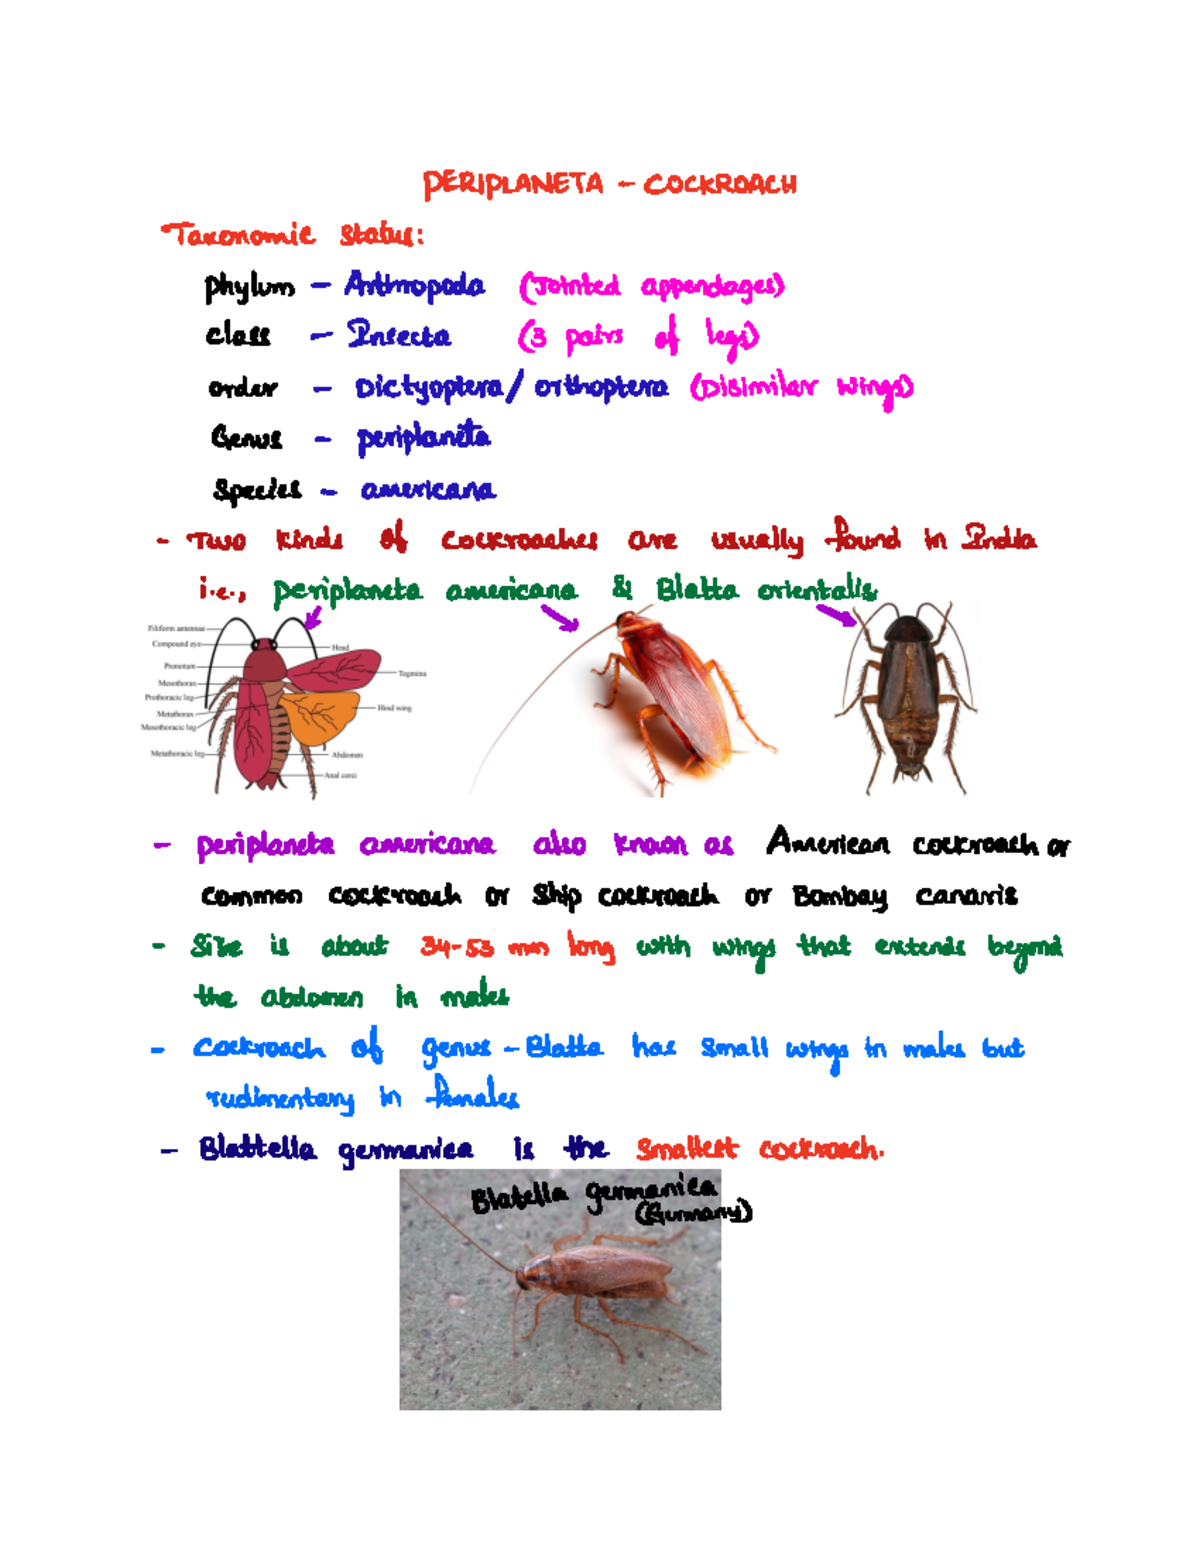 PERIPLANETA - COCKROACH
Taxonomic Status:
phylum - Arthropoda (Jointed appendages)
class - Insecta (3 pairs of legs)
order - Dictyoptera/ orthoptera (Disimilar wings)
Genus - periplaneta
Species - americana
- Two kinds of cockroaches are usually found in India
i.e., periplaneta americana & Blatta orientalis
Filiform antennae
Compound eye
Head
Pronotum
Tegmina
Mesothorax
Prothoracic leg
Hind wing
Metathorax
Mesothoracic leg
Metathoracic leg
Abdomen
Anal cerci
- periplaneta americana also known as American cockroach or
common cockroach or Ship cockroach or Bombay canaris
- Size is about 34-53 mm long with wings that extends beyond
the abdomen in males
- Cockroach of genus - Blatta has small wings in males but
rudimentary in females
- Blattella germanica is the smallest cockroach.
Blatella germanica
(Germany)